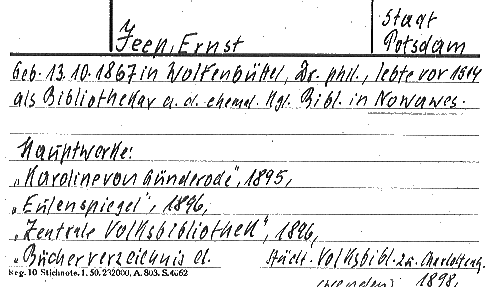 Stadt
Jeep, Ernst
Potsdam
Geb. 13.10.1867 in Wolfenbüttel, Dr. phil., lebte vor 1914
als Bibliothekar a. d. ehemal. Kgl. Bibl. in Nowawes.
Hauptwerke:
„Karoline von Günderode", 1895,
„Eulenspiegel", 1896,
„Zentrale Volksbibliothek", 1896,
„Bücherverzeichnis d. Städt. Volksbibl. zu Charlottenbg.
Reg. 10 Stichnote. 1. 50. 232000, A. 803. S. 4662
(wenden) 1898,